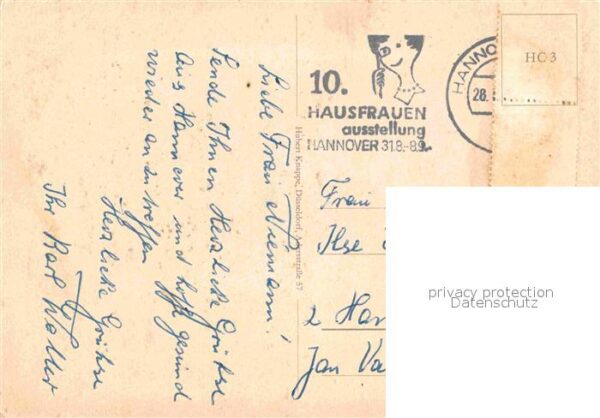 Liebe Frau Niemann!
Sende Ihnen Herzliche Grüsse
aus Hannover und hoffe gesund
wieder an zu treffen
Herzliche Grüsse
Ihr Karl Walter
Hubert Knuppe, Düsseldorf, 57
10.
HAUSFRAUEN
ausstellung
HANNOVER 31.8.-8.9.
HANNO
28.
HC 3
Frau
Ilse
2 Ham
Jan Va
privacy protection
Datenschutz